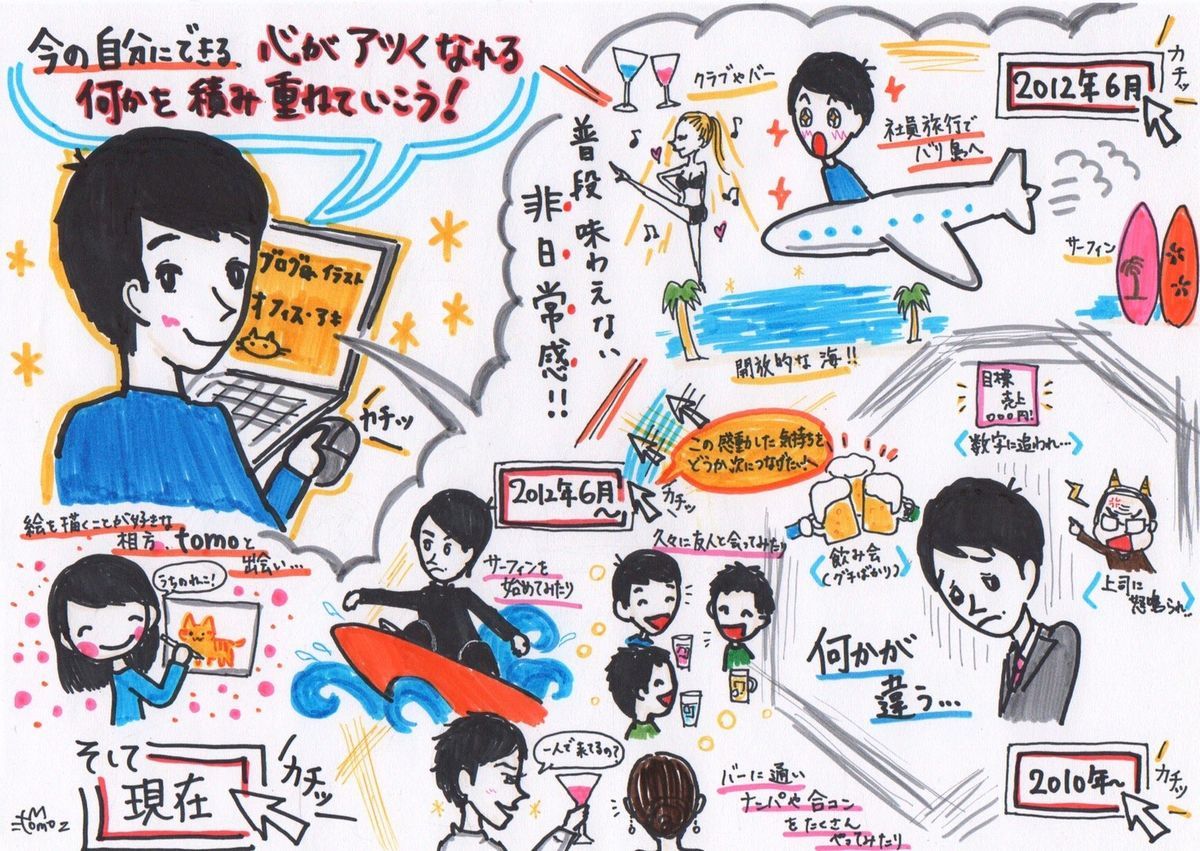 今の自分にできる 心がアツくなれる
何かを積み重ねていこう!
ブログ&イラスト
オフィス・アキ
カチッ
絵を描くことが好きな
相方、tomoと
出会い…
うちのねこ!
そして
現在
カチッ
tomo
2010年~
カチッ
何かが
違う…
目標
売上
〇〇〇円!
数字に追われ…
上司に
怒鳴られ!!
飲み会
(グチばかり)
2012年6月
カチッ
社員旅行で
バリ島へ
クラブやバー
サーフィン
開放的な海!!
普段味わえない
非日常感!!
この感動した気持ちを
どうか次につなげたい!
2012年6月
~
カチッ
サーフィンを
始めてみたり
久々に友人と会ってみたり
一人で来てるの?
バーに通い
ナンパや合コン
をたくさん
やってみたり